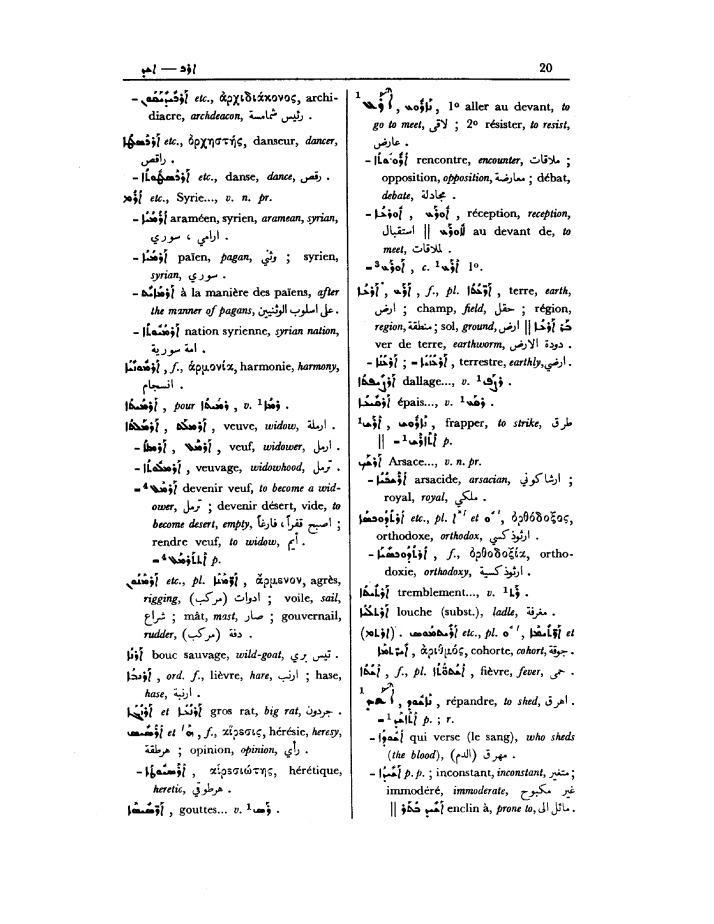 ܐܪܕ — ܐܫܕ 20
- ܐܪܟܝܕܝܩܘܢ etc., ἀρχιδιάκονος, archi-
diacre, archdeacon, رئيس شمامسة .
etc., ὀρχηστής, danseur, dancer,
راقص .
- etc., danse, dance, رقص .
ܐܪܡ etc., Syrie..., v. n. pr.
- ܐܪܡܝܐ araméen, syrien, aramean, syrian,
ارامي ، سوري .
- ܐܪܡܝܐ païen, pagan, وثني ; syrien,
syrian, سوري .
- ܐܪܡܐܝܬ à la manière des païens, after
the manner of pagans, على اسلوب الوثنيين .
- ܐܪܡܝܘܬܐ nation syrienne, syrian nation,
امة سورية .
ܐܪܡܘܢܝܐ, f., ἁρμονία, harmonie, harmony,
انسجام .
pour , v. 1 .
ܐܪܡܠܬܐ , veuve, widow, ارملة .
- ܐܪܡܠܐ , veuf, widower, ارمل .
- ܐܪܡܠܘܬܐ , veuvage, widowhood, ترمل .
- 4 ܐܪܡܠ devenir veuf, to become a wid-
ower, ترمل ; devenir désert, vide, to
become desert, empty, اصبح قفراً ، فارغاً ;
rendre veuf, to widow, أيم .
- 4 ܐܬܐܪܡܠ p.
etc., pl. , ἄρμενον, agrès,
rigging, ادوات (مركب) ; voile, sail,
شراع ; mât, mast, صار ; gouvernail,
rudder, دفة (مركب) .
ܐܪܢܐ bouc sauvage, wild-goat, تيس بري .
ܐܪܢܒܐ , ord. f., lièvre, hare, ارنب ; hase,
hase, ارنبة .
et gros rat, big rat, جردون .
et , f., αἵρεσις, hérésie, heresy,
هرطقة ; opinion, opinion, رأي .
- , αἱρεσιώτης, hérétique,
heretic, هرطوقي .
, gouttes... v. 1 .
1 ܐܪܥ , ܢܐܪܘܥ, 1º aller au devant, to
go to meet, لاقى ; 2º résister, to resist,
عارض .
- rencontre, encounter, ملاقات ;
opposition, opposition, معارضة ; débat,
debate, مجادلة .
- ܐܘܪܥܐ , ܐܘܪܥ , réception, reception,
استقبال || ܠܐܘܪܥ au devant de, to
meet, لملاقات .
- 3 ܐܘܪܥ , c. 1 ܐܪܥ 1º.
ܐܪܥܐ , ܐܪܥ , f., pl. ܐܪܥܬܐ , terre, earth,
ارض ; champ, field, حقل ; région,
region, منطقة ; sol, ground, ارض || ܒܪ ܐܪܥܐ
ver de terre, earthworm, دودة الارض .
- ; - , terrestre, earthly, ارضي .
dallage..., v. 1 .
épais..., v. 1 .
1 , , frapper, to strike, طرق
|| - 1 p.
Arsace..., v. n. pr.
- arsacide, arsacian, ارشاكوني ;
royal, royal, ملكي .
etc., pl. et , ὀρθόδοξος,
orthodoxe, orthodox, ارثوذكسي .
- , f., ὀρθοδοξία, ortho-
doxie, orthodoxy, ارثوذكسية .
tremblement..., v. 1 .
louche (subst.), ladle, مغرفة .
etc., pl. , et
, ἀριθμός, cohorte, cohort, جوقة .
ܐܫܬܐ , f., pl. , fièvre, fever, حمى .
1 ܐܫܕ , ܢܐܫܘܕ , répandre, to shed, اهرق .
- 1 ܐܬܐܫܕ p. ; r.
- ܐܫܘܕܐ qui verse (le sang), who sheds
(the blood), مهرق (الدم) .
- ܐܫܝܕܐ p.p. ; inconstant, inconstant, متغير ;
immodéré, immoderate, غير مكبوح
|| enclin à, prone to, مائل الى .